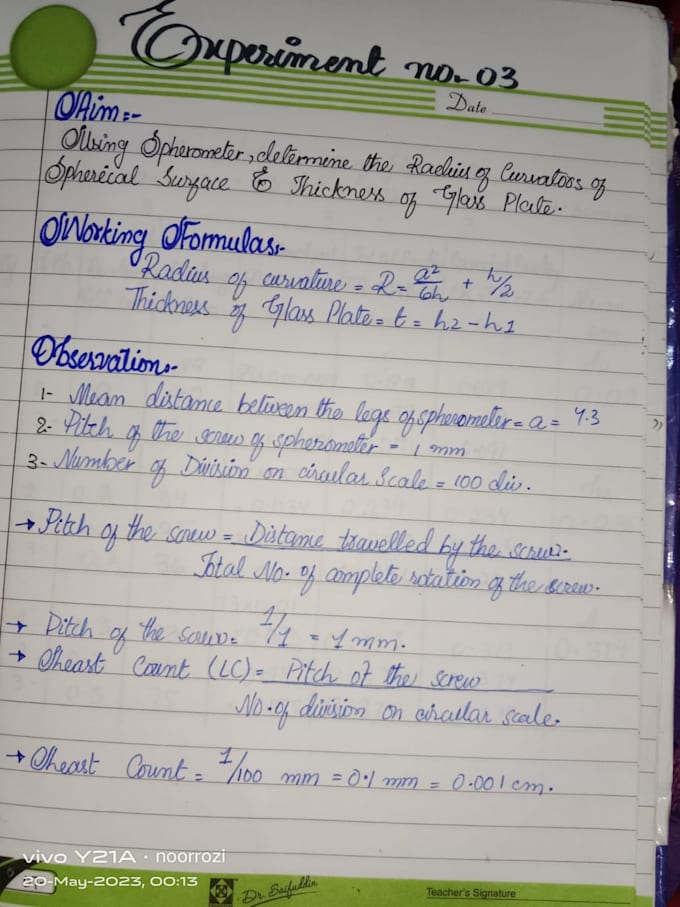 Experiment no. 03
Date
Aim:-
Using Spherometer, determine the Radius of Curvatoos of
Spherical Surface & Thickness of Glass Plate.
Working Formulas:-
Radius of curvature = R = a²/6h + h/2
Thickness of Glass Plate = t = h2 - h1
Observation:-
1- Mean distance between the legs of spherometer = a = 4.3
2- Pitch of the screw of spherometer = 1 mm
3- Number of Division on circular Scale = 100 div.
→ Pitch of the screw = Distance travelled by the screw.
Total No. of complete rotation of the screw.
→ Pitch of the screw = 1/1 = 1 mm.
→ Least Count (LC) = Pitch of the screw
No. of division on circular scale.
→ Least Count = 1/100 mm = 0.1 mm = 0.001 cm.
vivo Y21A · noorrozi
20-May-2023, 00:13
Dr. Saifuddin
Teacher's Signature